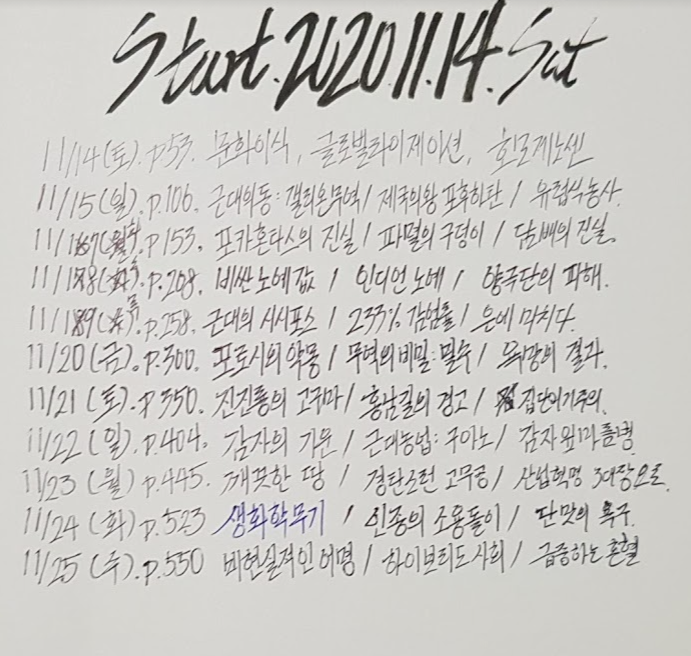 Start. 2020.11.14. Sat
11/14(토). p.53. 문화이식, 글로벌라이제이션, 호모제노센
11/15(일). p.106. 근대의동: 갤리온무역 / 제국의왕 포우하탄 / 유럽식농사.
11/17(화). p.153. 포카혼타스의 진실 / 파멸의 구덩이 / 담배의 진실.
11/18(수). p.208. 비싼 노예값 / 인디언 노예 / 양극단의 피해.
11/19(목). p.258. 근대의 시시포스 / 233% 감염률 / 은에 미치다.
11/20(금). p.300. 포토시의 악몽 / 무역의 비밀: 밀수 / 의 결과.
11/21(토). p.350. 진진룡의 고구마 / 홍남길의 경고 / 집단이기주의.
11/22(일). p.404. 감자의 기운 / 근대농법: 구아노 / 감자잎마름병
11/23(월) p.445. 깨끗한 땅 / 경탄스런 고무공 / 산업혁명 3대장으로.
11/24(화) p.523 생화학무기 / 인종의 소용돌이 / 단맛의 욕구.
11/25(수). p.550 비현실적인 여명 / 하이브리드사회 / 급증하는 혼혈